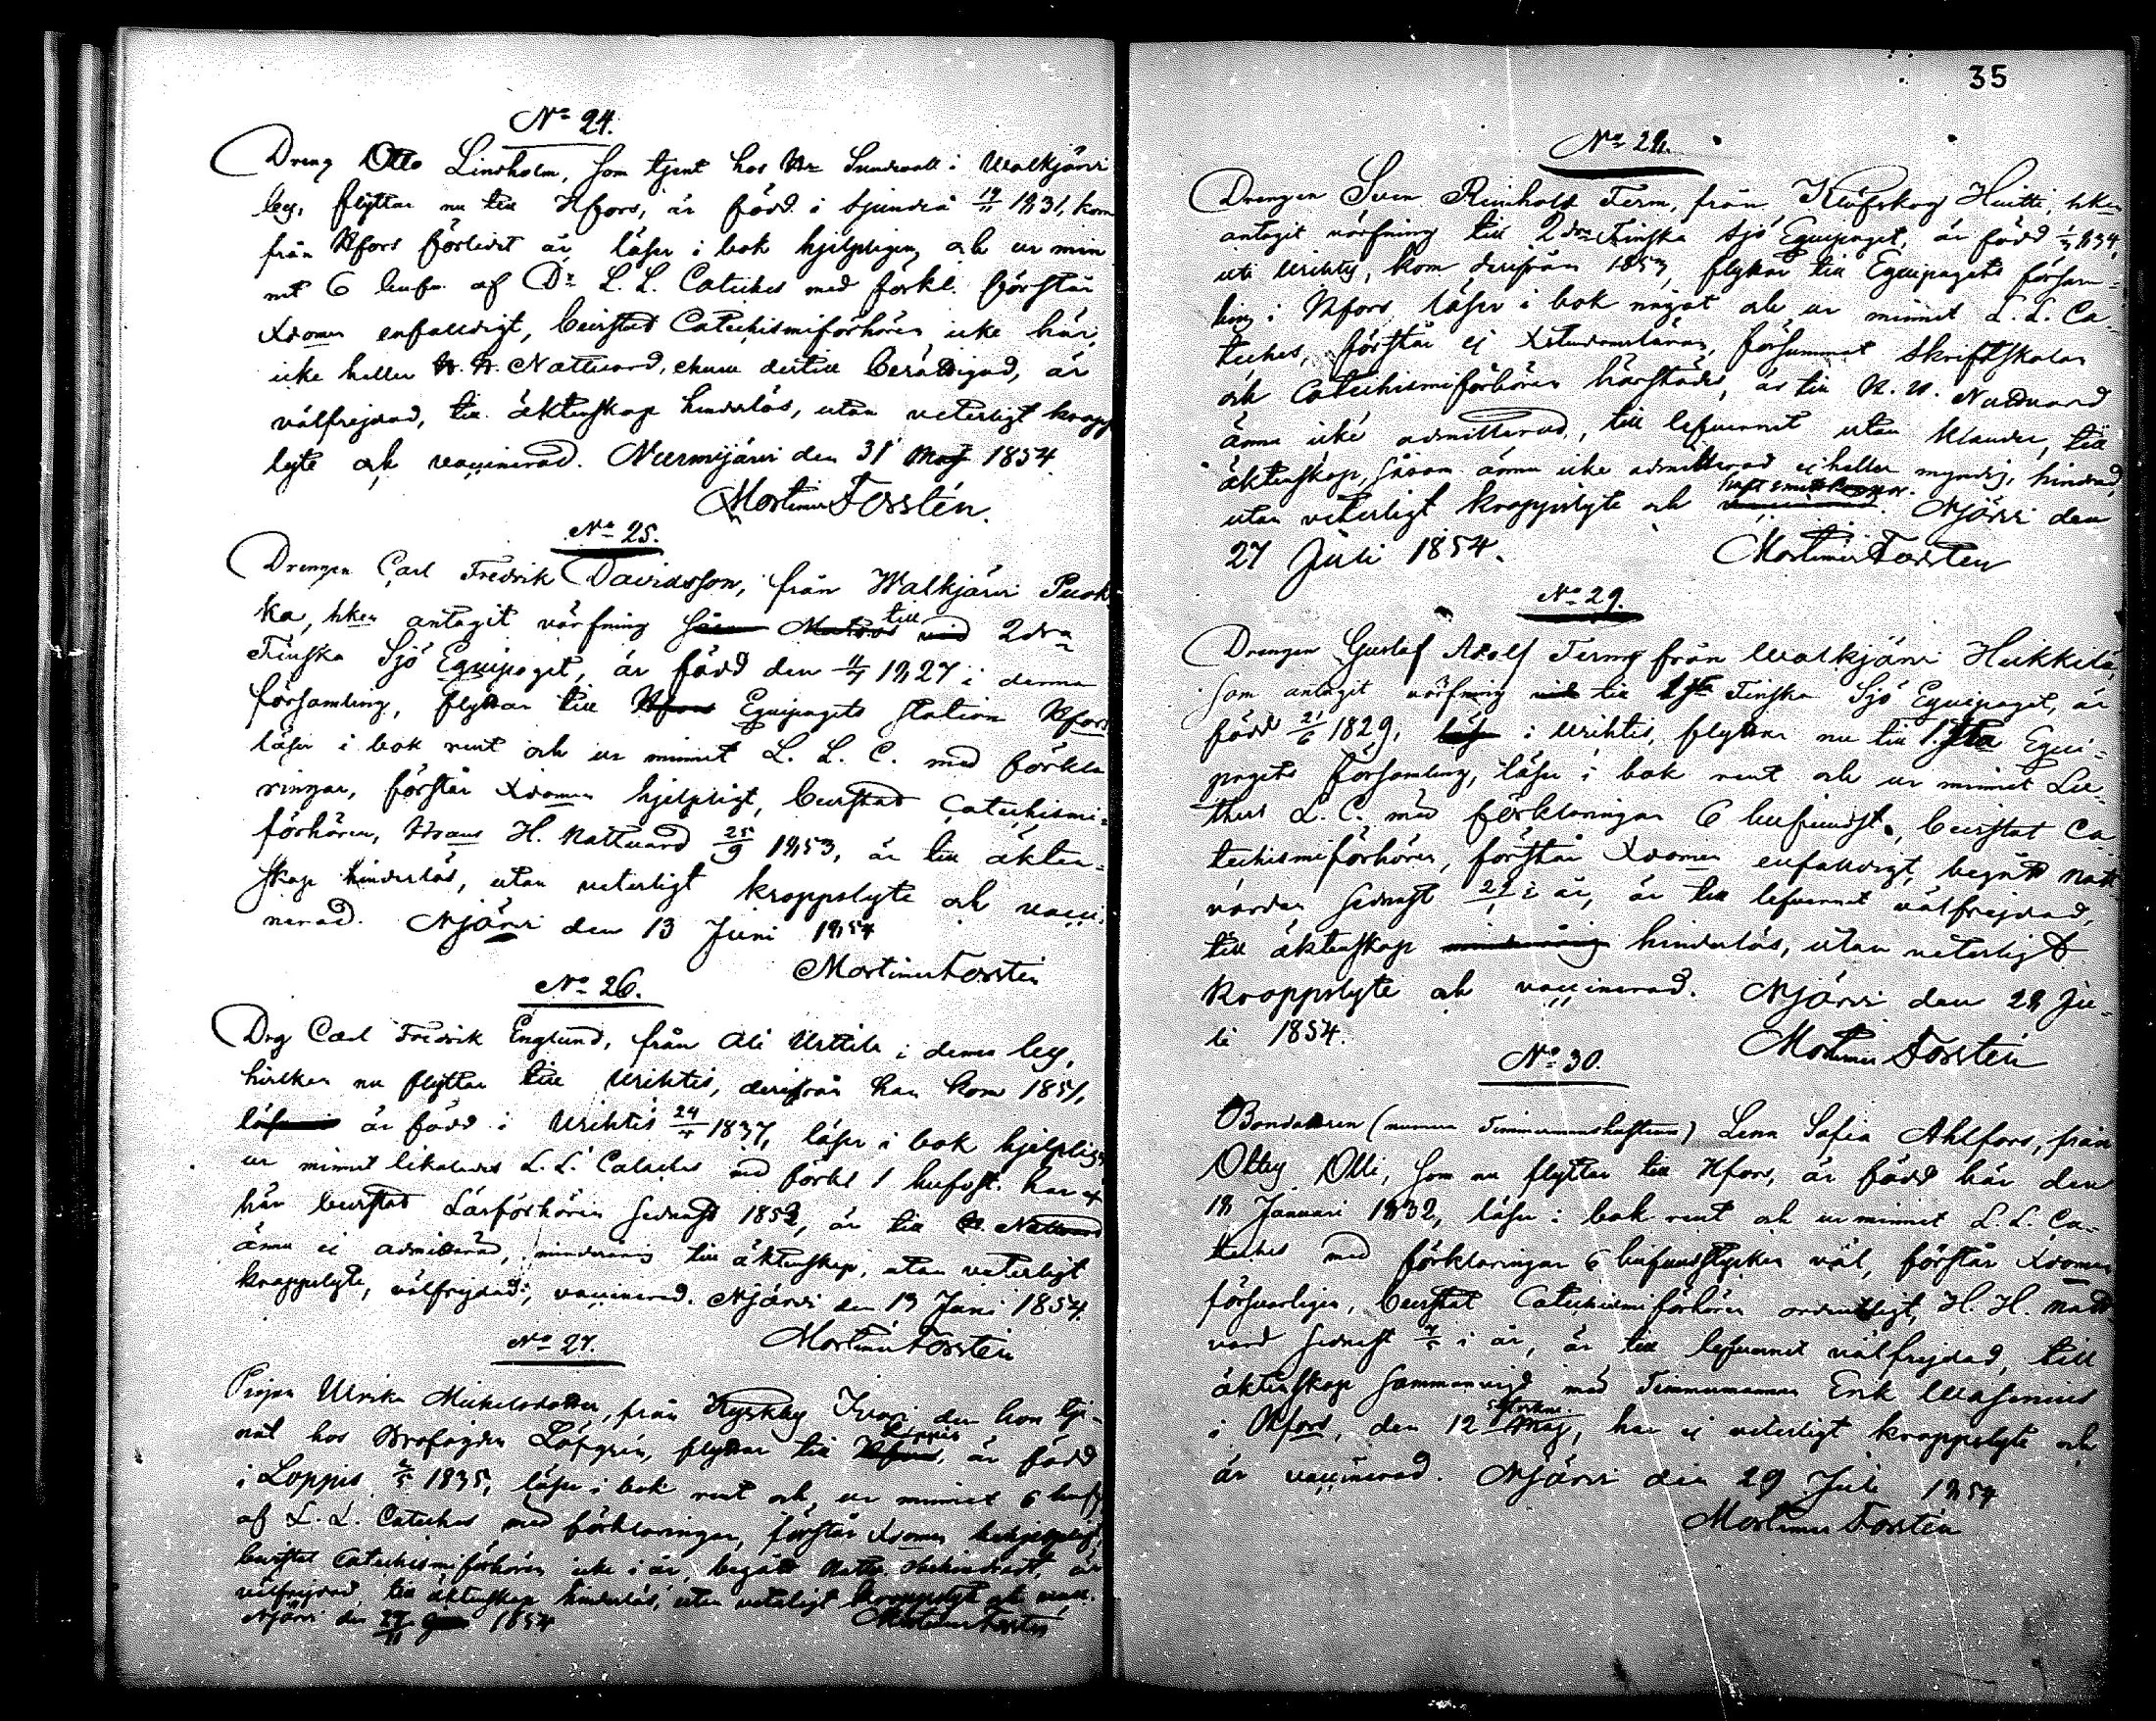 No 24.
Dreng Otto Lindholm, som tjent hos Hr Sundvall i Walkjärvi
by, flyttar nu till Hfors, är född i Sjundeå 19/11 1831, kom
från Hfors förlidet år, läser i bok hjelpligen och ur min
net 6 hufv. af Dr L. L. Catches med förkl. förstår
Xdomen enfalldigt, bevistat Catechismiförhören icke här,
icke heller H. H. Nattvard, ehuru dertill berättigad, är
välfrejdad, till äktenskap hinderlös, utan veterligt kropps
lyte och vaccinerad. Nurmijärvi den 31 Maj 1854
Mortimer Forstén.
No 25.
Drengen Carl Fredrik Davidsson, från Walkjärvi Puok
ka, hken antagit värfning såsom Matros till vid 2dra
Finska Sjö Equipaget, är född den 11/4 1827 i denna
församling, flyttar till Hfors Equipagets station Hfors
läser i bok rent och ur minnet L. L. C. med förkla
ringar, förstår Xdomen hjelpligt, bevistat Catechismi-
förhören, H. Nattvard 25/9 1853, är till äkten-
skap hinderlös, utan veterligt kroppslyte och vacci
nerad. Njärvi den 13 Juni 1854
Mortimer Forstén
No 26.
Drg Carl Fredrik Englund, från Ali Uttila i denna by,
hvilken nu flyttar till Wichtis, derifrån han kom 1851,
är född i Wichtis 24/4 1837, läser i bok hjelpligt
ur minnet likaledes L. L. Cateches med förkl 1 hufvst. har
här bevistat Läsförhören sednast 1852, är till H. Nattvard
ännu ej admitterad, minderårig till äktenskap, utan veterligt
kroppslyte, välfrejdad, vaccinerad. Njärvi den 13 Juni 1854.
Mortimer Forstén
No 27.
Pigan Ulrika Michelsdotter, från Kyrkby Ivari, der hon tje-
nat hos Löfgrén, flyttar till Hfors Loppis, är född
i Loppis 2/5 1835, läser i bok rent och ur minnet 6 hufv
af L. L. Cateches med förklaringar, förstår Xdomen
bevistat Catechismiförhören icke i år, begått Nattv. obehindradt, är
välfrejdad, till äktenskap hinderlös, utan veterligt kroppslyte och vacc.
Njärvi den 1854
Mortimer Forstén
35
No 28.
Drengen Sven Reinhold Term, från Klöfskog Huitti, hken
antagit värfning till 2dra Finska Sjö Equipaget, är född 1/3 1834
uti Wichtis, kom derifrån 1853, flyttar till Equipagets försam-
ling i Hfors, läser i bok något och ur minnet L. L. Ca-
teches, förstår ej Xstendomsläran, försummat Skriftskolan
och Catechismiförhören härstädes, är till H. H. Nattvard
ännu icke admitterad, till lefvernet utan klander, till
äktenskap, såsom ännu icke admitterad ej heller myndig, hindrad,
utan veterligt kroppslyte och haft smittkoppor. vaccinerad. Njärvi den
27 Juli 1854.
Mortimer Forstén
No 29.
Drengen Gustaf Adolf Term från Walkjärvi Heikkilä,
som antagit värfning vid till 1sta Finska Sjö Equipaget, är
född 21/6 1829, i Wichtis, flyttar nu till 1sta Equi-
pagets församling, läser i bok rent och ur minnet Lu-
thers L. C. med förklaringar 6 hufvudst., bevistat Ca-
techismiförhören, förstår Xdomen enfalldigt, begått Natt-
varden sednast i år, är till lefvernet välfrejdad,
till äktenskap minderårig hinderlös, utan veterligt
kroppslyte och vaccinerad. Njärvi den 28 Ju-
li 1854.
Mortimer Forstén
No 30.
Bondadren (numera Timmermanshustrun) Lena Sofia Ahlfors, från
Olli, som nu flyttar till Hfors, är född här den
18 Januari 1832, läser i bok rent och ur minnet L. L. Ca-
teches med förklaringar 6 hufvudstycken väl, förstår Xdomen
försvarligen, bevistat Catechismiförhören ordentligt, H. H. Natt
vard sednast i år, är till lefvernet välfrejdad, till
äktenskap sammanvigd med Timmermannen Erik Wasenius
i Hfors, den 12 Maj, har ej veterligt kroppslyte och
är vaccinerad. Njärvi den 29 Juli 1854
Mortimer Forstén